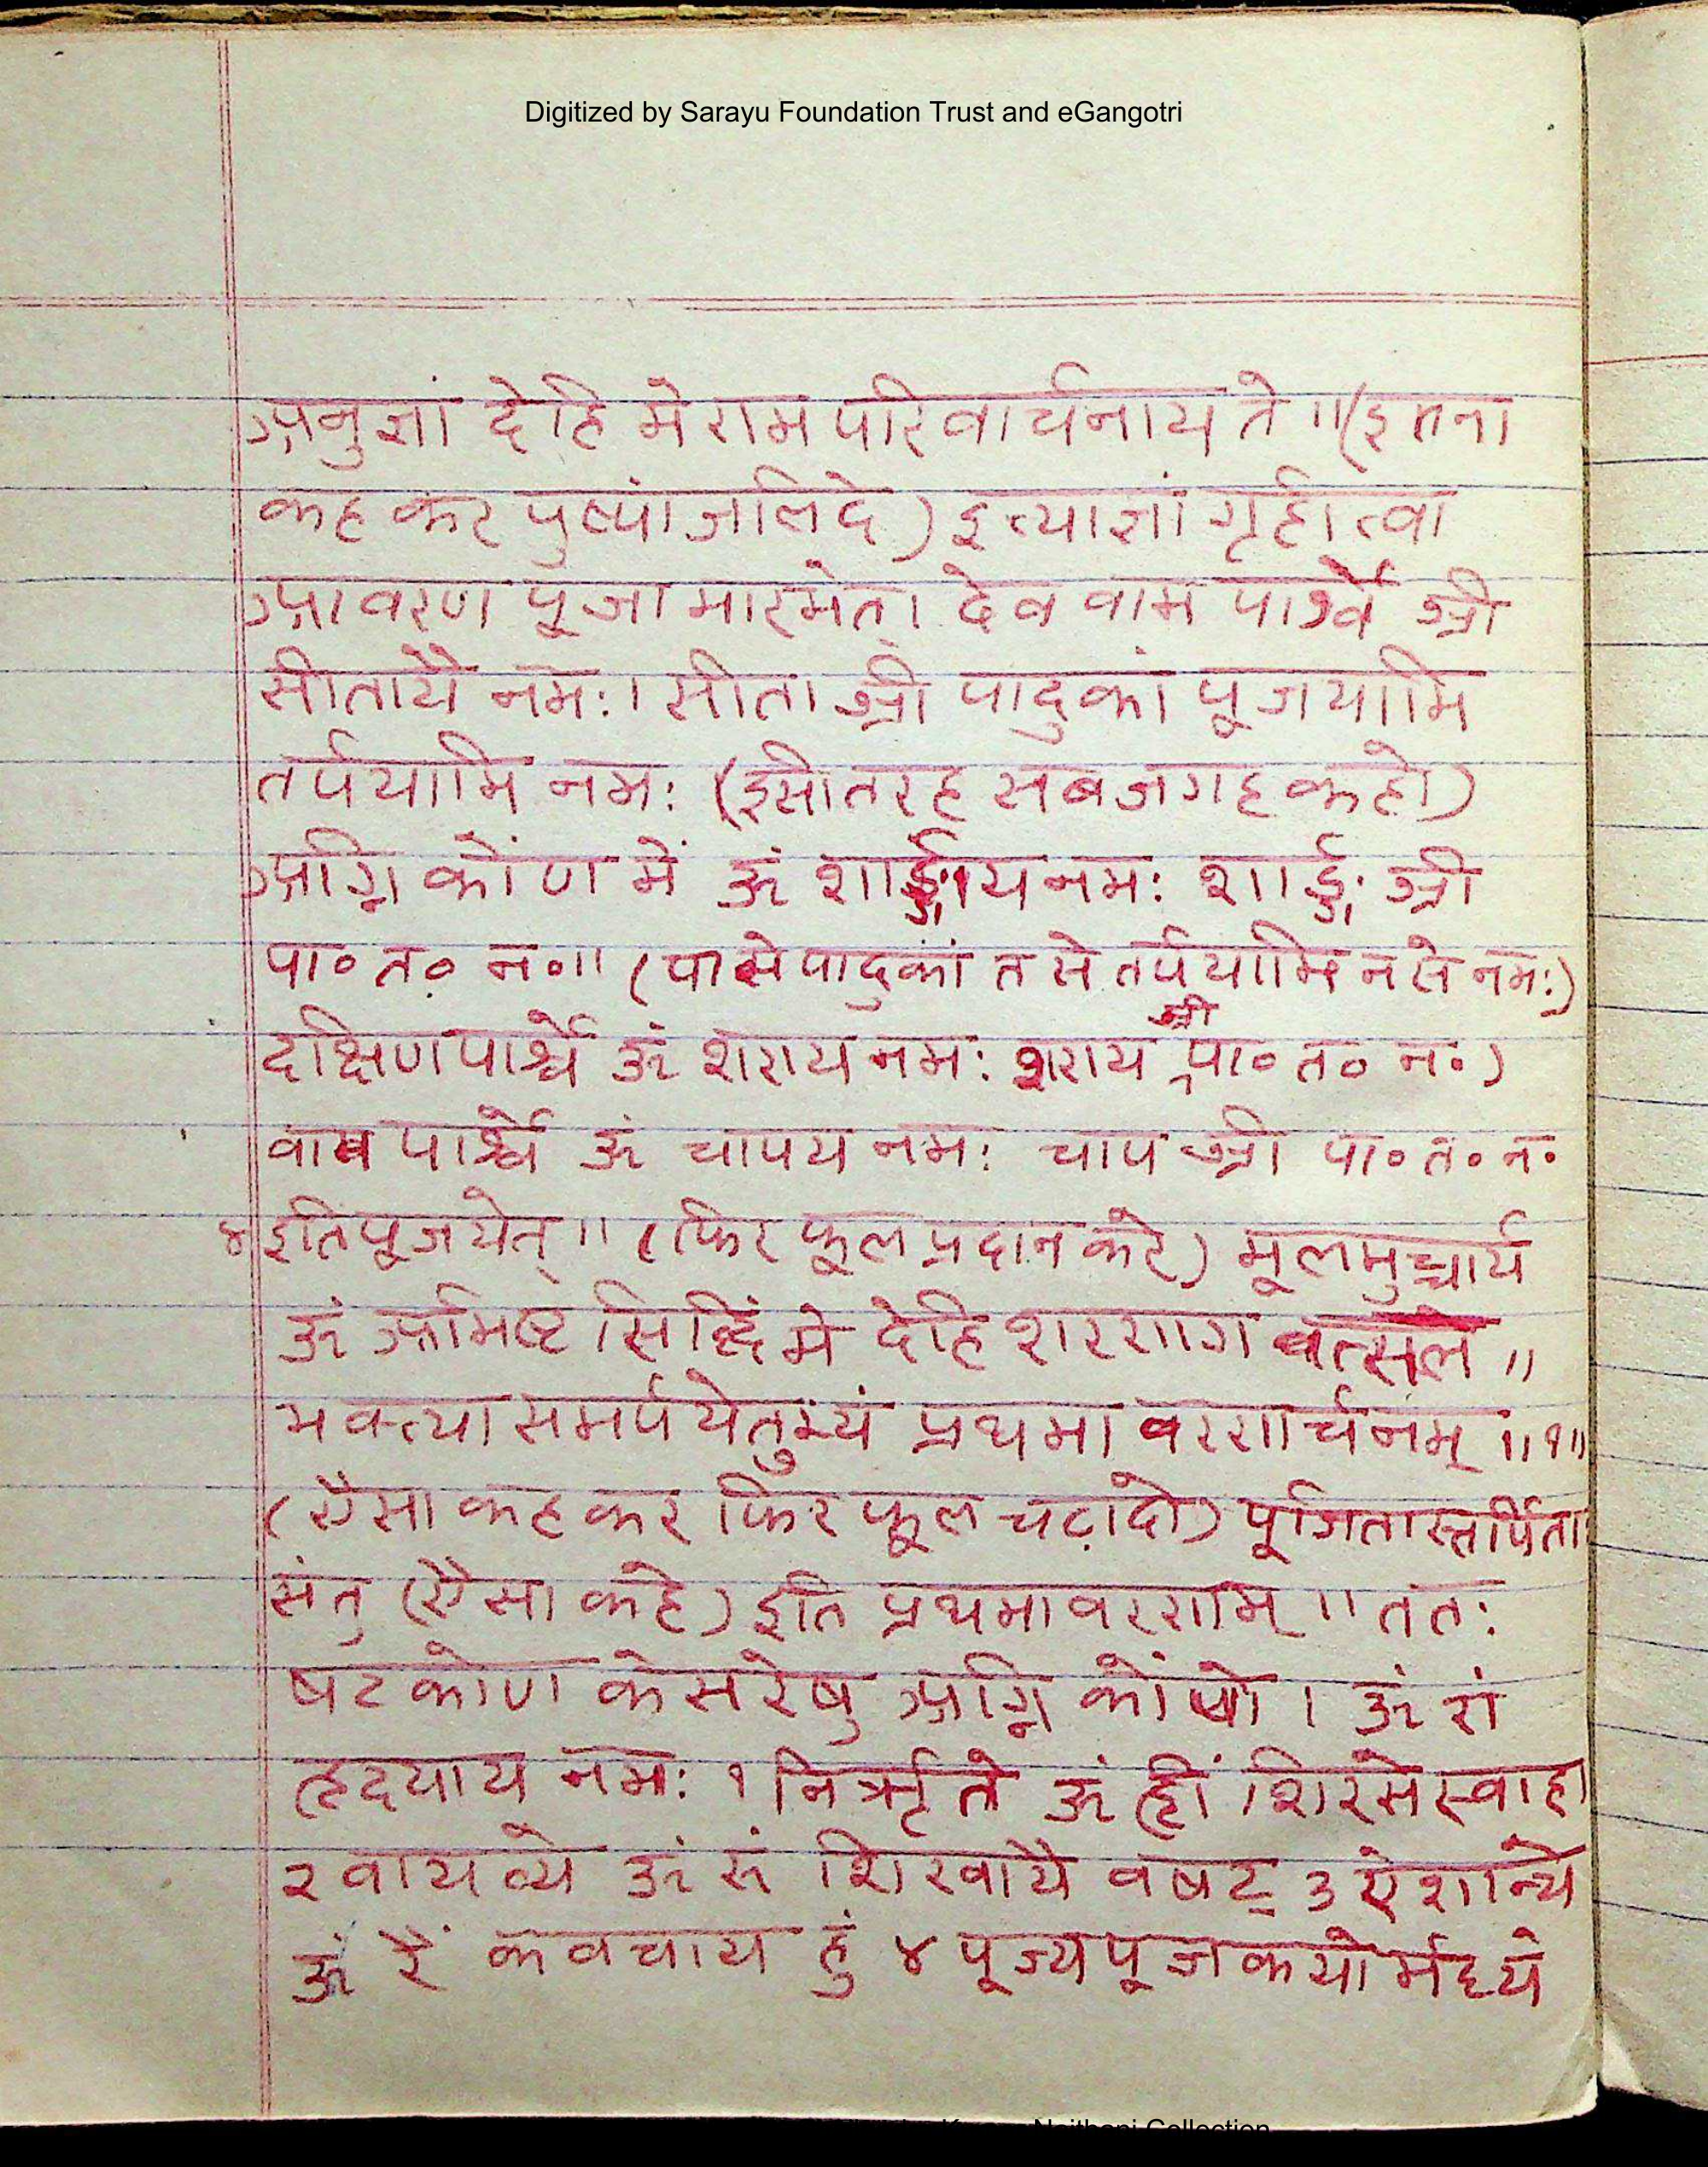 Digitized by Sarayu Foundation Trust and eGangotri
अनुज्ञां देहि मे राम परिवार्चनाय ते ॥ (इतना
कह कर पुष्पांजलि दे) इत्याज्ञां गृहीत्वा
आवरण पूजा मारभेत्। देव वाम पार्श्वे श्री
सीतायै नमः। सीता श्री पादुकां पूजयामि
तर्पयामि नमः (इसी तरह सब जगह कहो)
अग्नि कोंण में ॐ शार्ङ्गाय नमः शार्ङ्ग श्री
पा॰ त॰ न॰॥ (पा से पादुकां त से तर्पयामि न से नमः)
दक्षिण पार्श्वे ॐ शराय नमः शराय श्री पा॰ त॰ न॰)
वाम पार्श्वे ॐ चापय नमः चाप श्री पा॰ त॰ न॰
४ इति पूजयेत्॥ (फिर फूल प्रदान करे) मूलमुच्चार्य
ॐ अभिष्ट सिद्धिं मे देहि शरणाग वत्सले ॥
भक्त्या समर्पयेतुभ्यं प्रथमा वरणार्चनम् ॥१॥
(ऐसा कह कर फिर फूल चढ़ा दो) पूगितास्तर्पिता
संतु (ऐसा कहे) इति प्रथमावरणम्॥ ततः
षटकोण केसरेषु अग्नि कोंणे। ॐ रां
हृदयाय नमः १ निर्ऋते ॐ ह्रीं शिरसे स्वाहा
२ वायव्ये ॐ रूं शिखायै वषट् ३ ऐशान्ये
ॐ रैं कवचाय हुं ४ पूज्य पूजकयोर्मध्ये
Naithani Collection